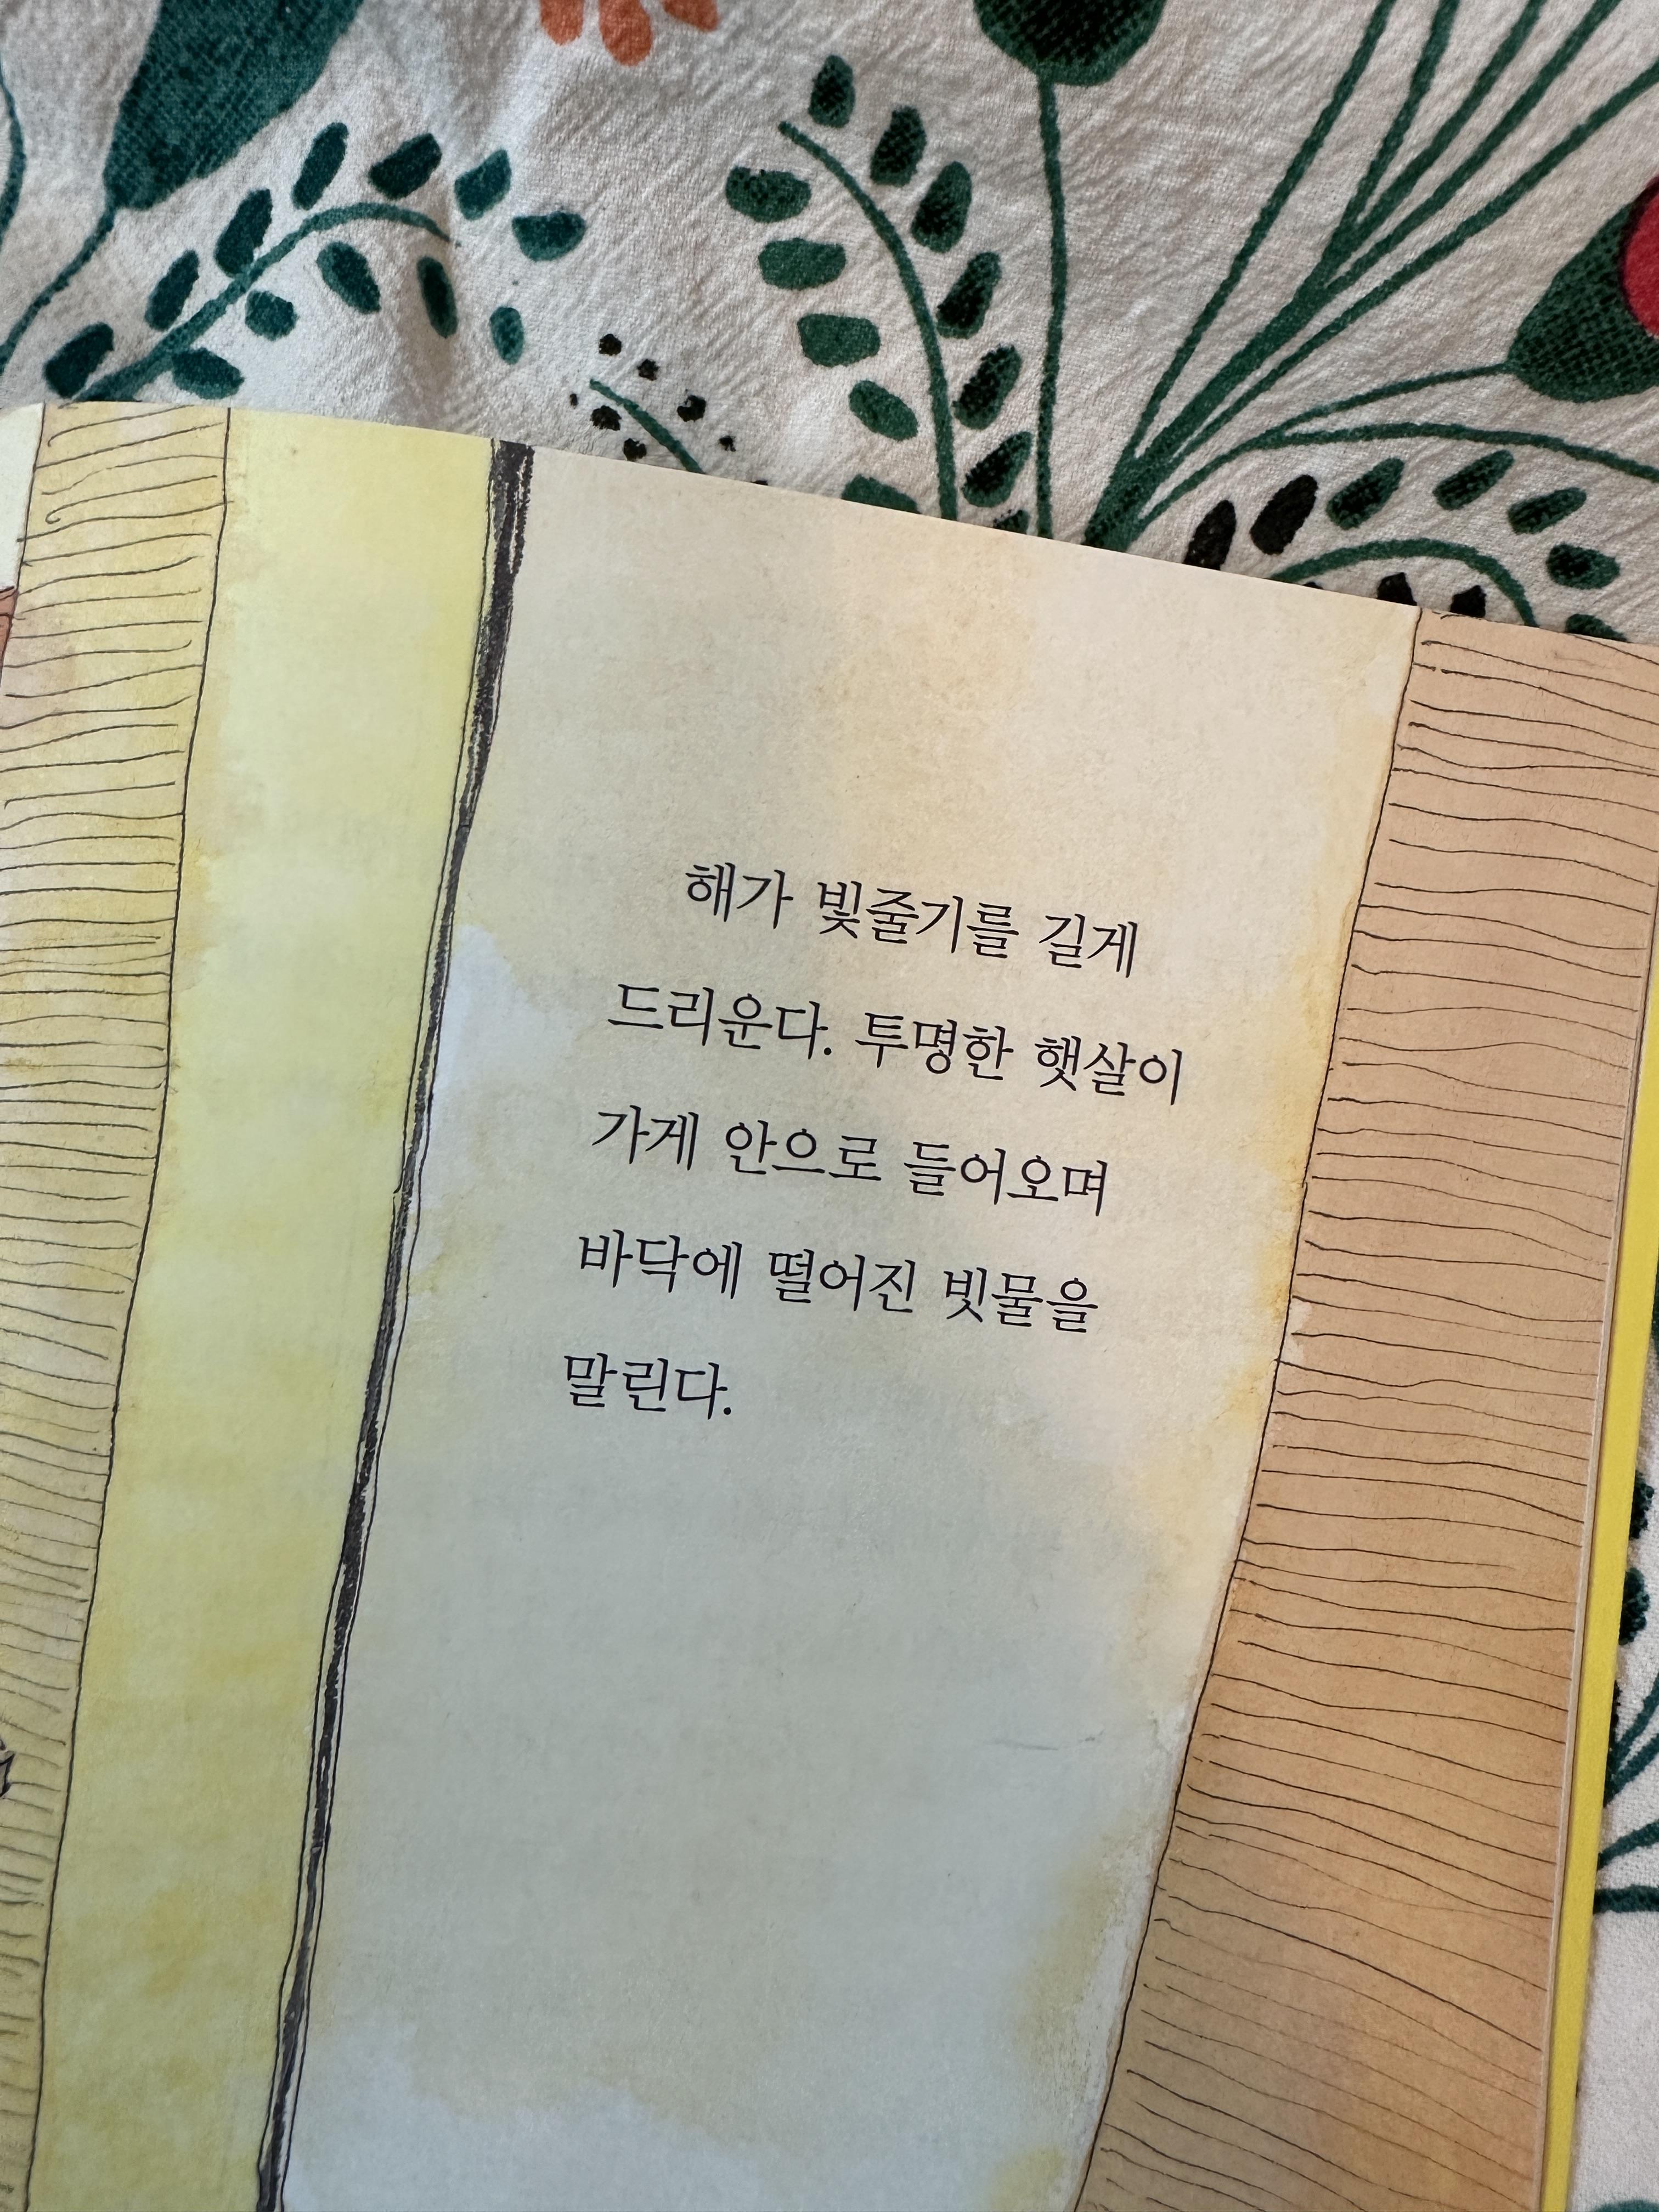 해가 빛줄기를 길게
드리운다. 투명한 햇살이
가게 안으로 들어오며
바닥에 떨어진 빗물을
말린다.